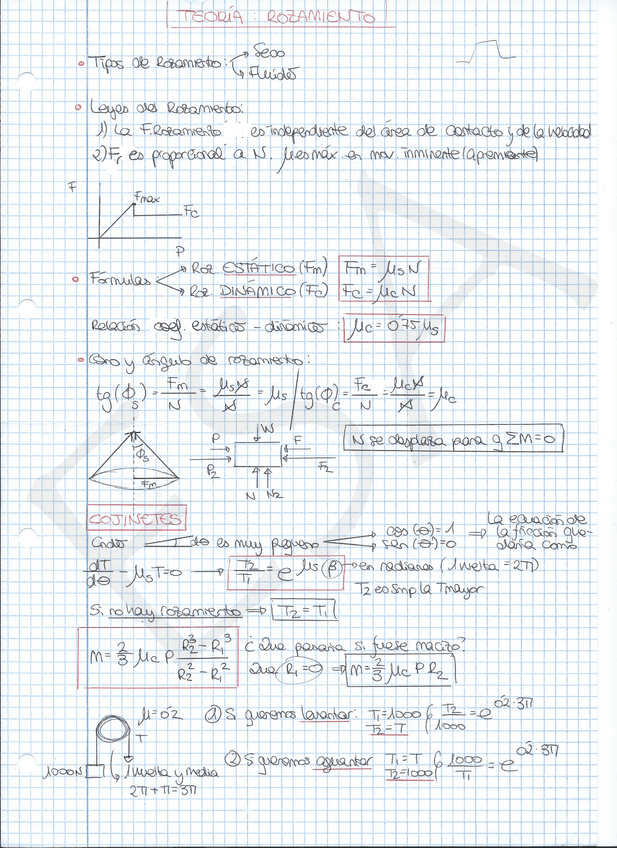 TEORÍA: ROZAMIENTO
• Tipos de Rozamiento: → Seco
→ Fluido
• Leyes del Rozamiento:
1) La F.Rozamiento es independiente del área de contacto y de la velocidad
2) Fr es proporcional a N. μ es máx. en mov. inminente (apremiante)
F
Fmax
Fc
P
• Fórmulas → Roz. ESTÁTICO (Fm) Fm = μs N
→ Roz. DINÁMICO (Fc) Fc = μc N
Relación coef. estáticos - dinámicos: μc = 0'75 μs
• Cono y ángulo de rozamiento:
tg(ϕs) = Fm/N = μsN/N = μs / tg(ϕ)c = Fc/N = μcN/N = μc
ϕs
Fm
W
P
F
P2
F2
N N2
N se desplaza para q ΣM=0
COJINETES
Cndo dθ es muy pequeño → cos(θ)=1
→ sen(θ)=0
⇒ La ecuación de
la fricción que-
daría como
dT/dθ - μsT=0 → T2/T1 = e^μs(β) → en radianes (1 vuelta = 2π)
T2 es smp la T mayor
Si no hay rozamiento ⇒ T2 = T1
M = 2/3 μc P (R2³ - R1³)/(R2² - R1²)
¿Que pasaría si fuese macizo?
Que R1=0 ⇒ M = 2/3 μc P R2
μ=0'2
T
1000N
1 vuelta y media
2π+π=3π
① Si queremos levantar: T1=1000 T2=T T2/1000 = e^0'2·3π
② Si queremos aguantar T1=T T2=1000 1000/T1 = e^0'2·3π